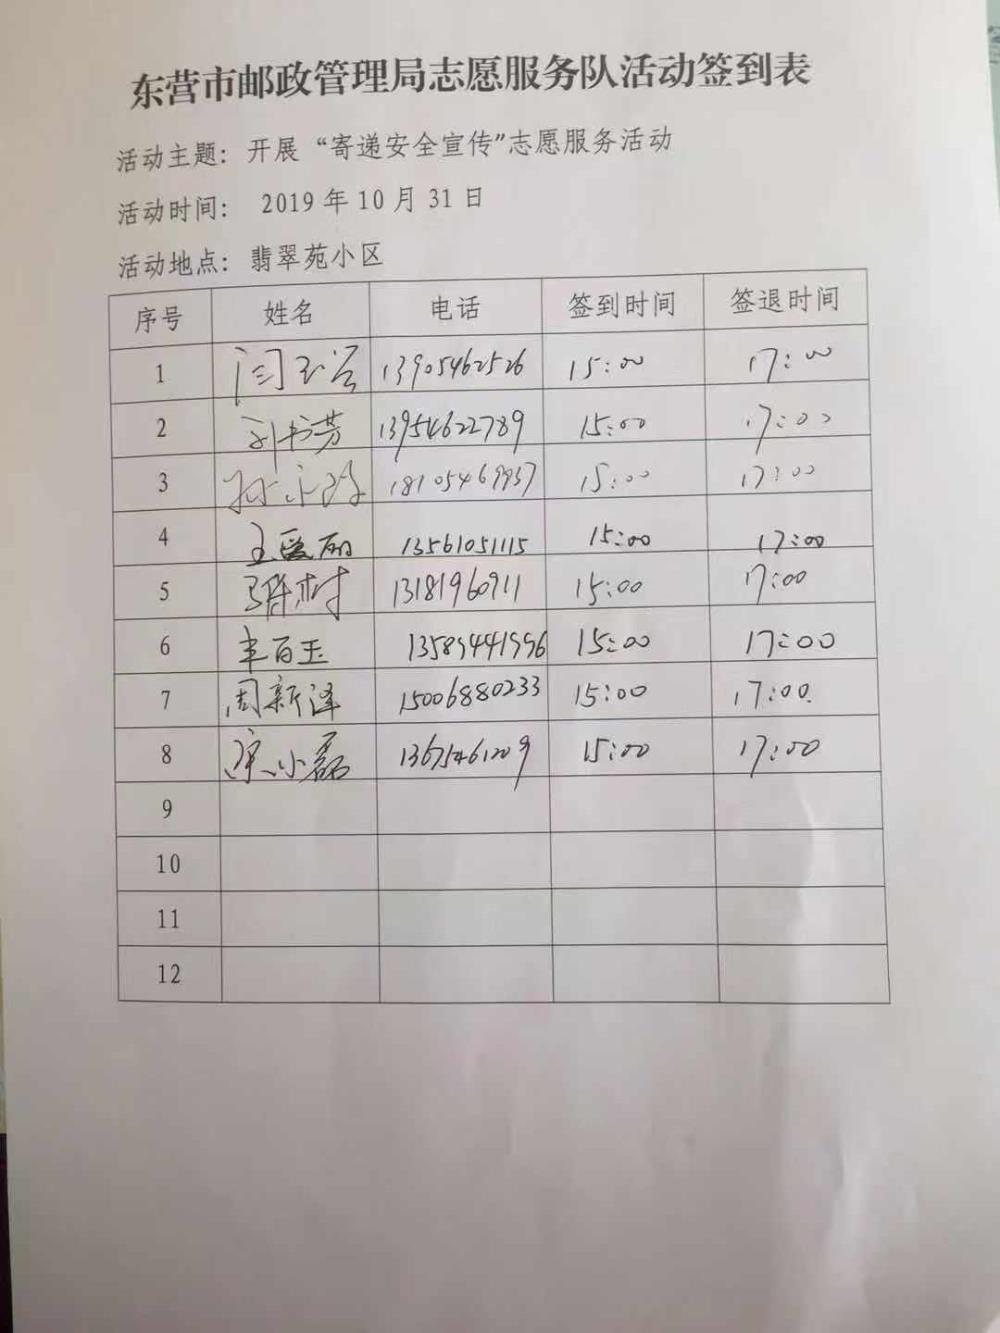 东营市邮政管理局志愿服务队活动签到表
活动主题：开展“寄递安全宣传”志愿服务活动
活动时间： 2019 年 10 月 31 日
活动地点：翡翠苑小区
序号 姓名 电话 签到时间 签退时间
1 13905462526 15:00 17:00
2 刘书芳 13954622789 15:00 17:00
3 18105469937 15:00 17:00
4 王爱丽 13561051115 15:00 17:00
5 13181960911 15:00 17:00
6 丰百玉 15:00 17:00
7 周新泽 15006880233 15:00 17:00
8 小磊 13675461209 15:00 17:00
9
10
11
12